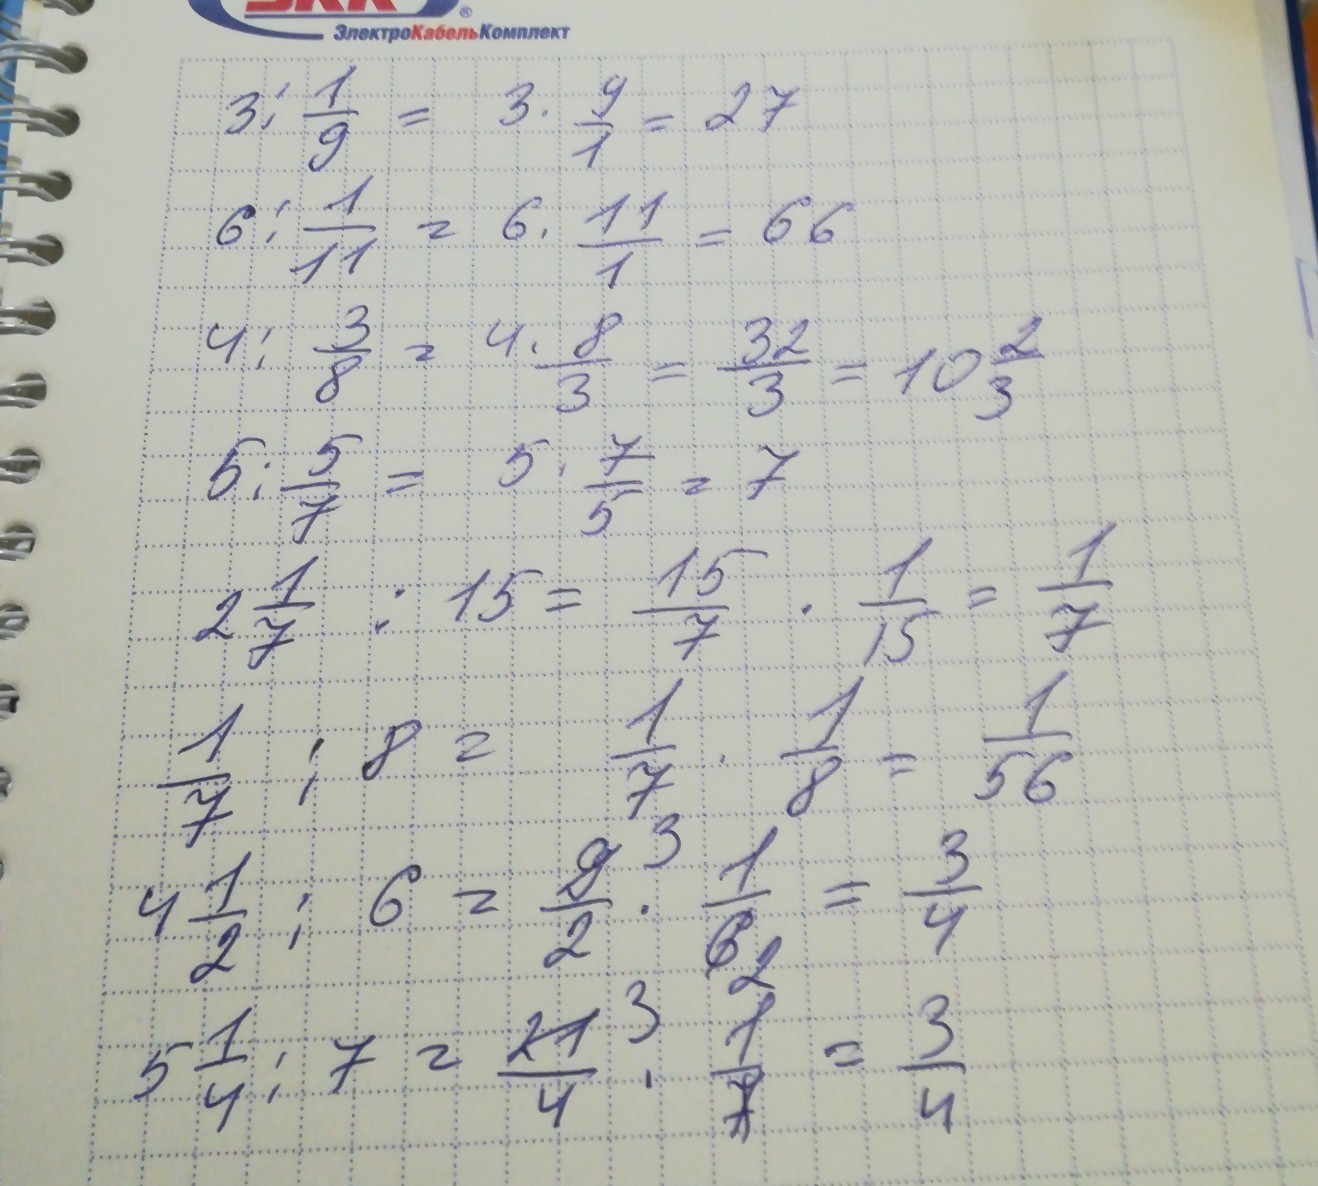 ЭКК®
ЭлектроКабельКомплект
3 : 1/9 = 3 · 9/1 = 27
6 : 1/11 = 6 · 11/1 = 66
4 : 3/8 = 4 · 8/3 = 32/3 = 10 2/3
5 : 5/7 = 5 · 7/5 = 7
2 1/7 : 15 = 15/7 · 1/15 = 1/7
1/7 : 8 = 1/7 · 1/8 = 1/56
4 1/2 : 6 = 9/2 3 · 1/6 2 = 3/4
5 1/4 : 7 = 21/4 3 · 1/7 = 3/4